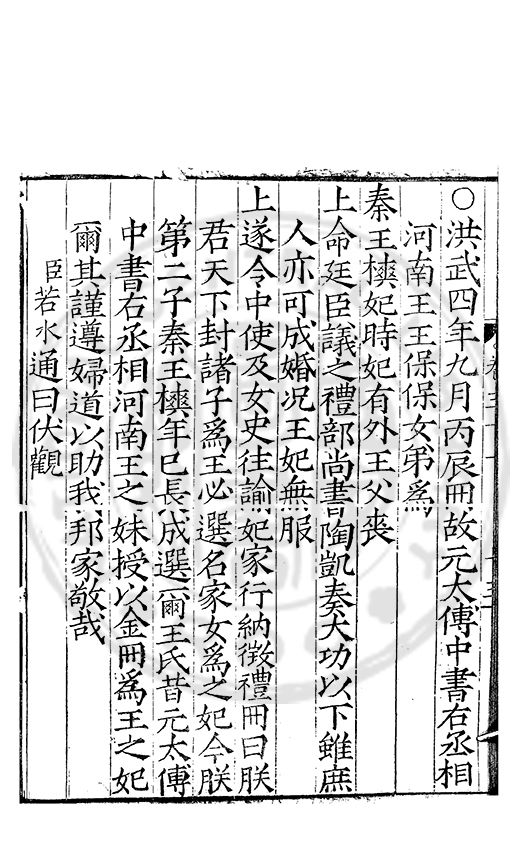 ○洪武四年九月丙辰冊故元太傅中書右丞相
河南王王保保女弟爲
秦王樉妃時妃有外王父喪
上命廷臣議之禮部尚書陶凱奏大功以下雖庶
人亦可成婚况王妃無服
上遂令中使及女史往諭妃家行納徵禮冊曰朕
君天下封諸子爲王必選名家女爲之妃今朕
第二子秦王樉年已長成選爾王氏昔元太傅
中書右丞相河南王之妹授以金冊爲王之妃
爾其謹遵婦道以助我邦家敬哉
臣若水通曰伏觀